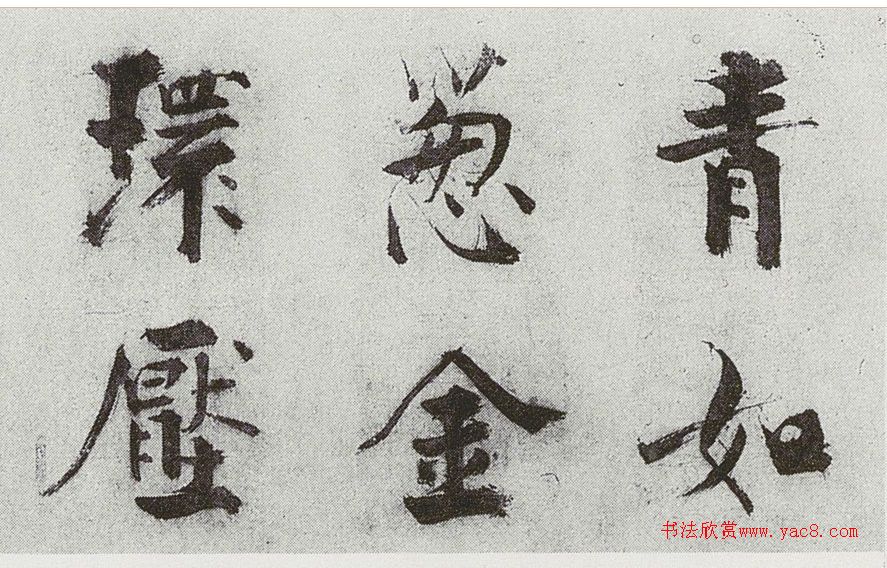 青如
葱金
環壓
书法欣赏www.yac8.com